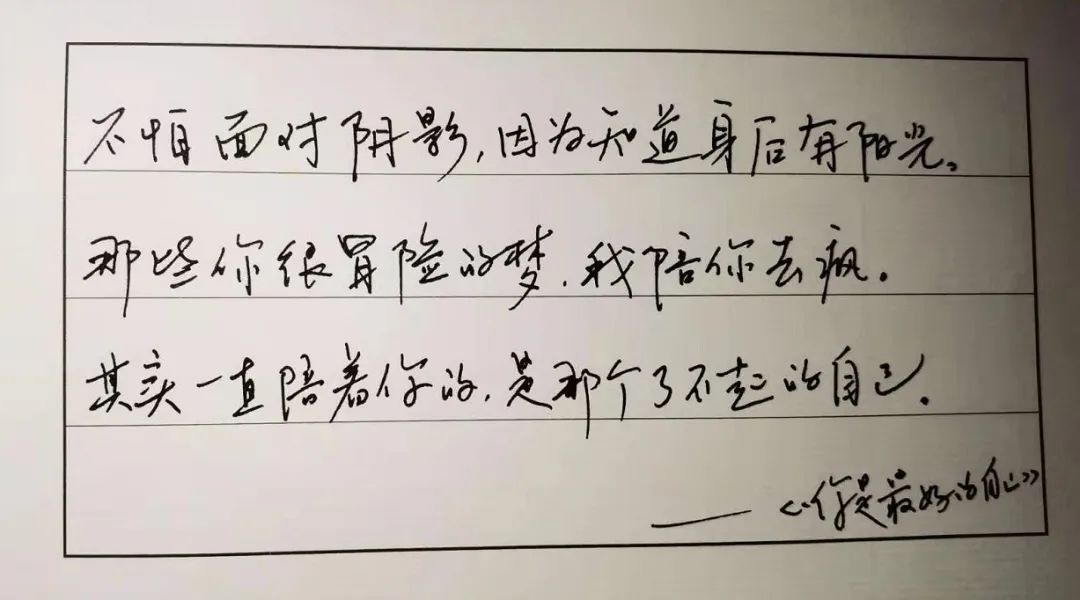 不怕面对阴影,因为知道身后有阳光。
那些你很冒险的梦.我陪你去疯.
其实一直陪着你的.是那个了不起的自己.
——《你是最好的自己》